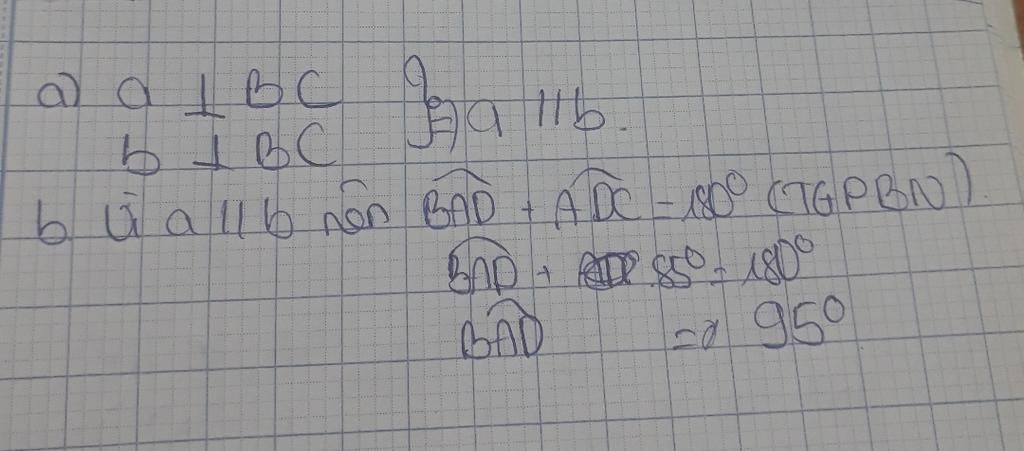 a) a ⊥ BC } ⇒ a // b.
b ⊥ BC
b Vì a // b nên BAD + ADC = 180° (TGPBN).
BAD + 85° = 180°
BAD = 95°